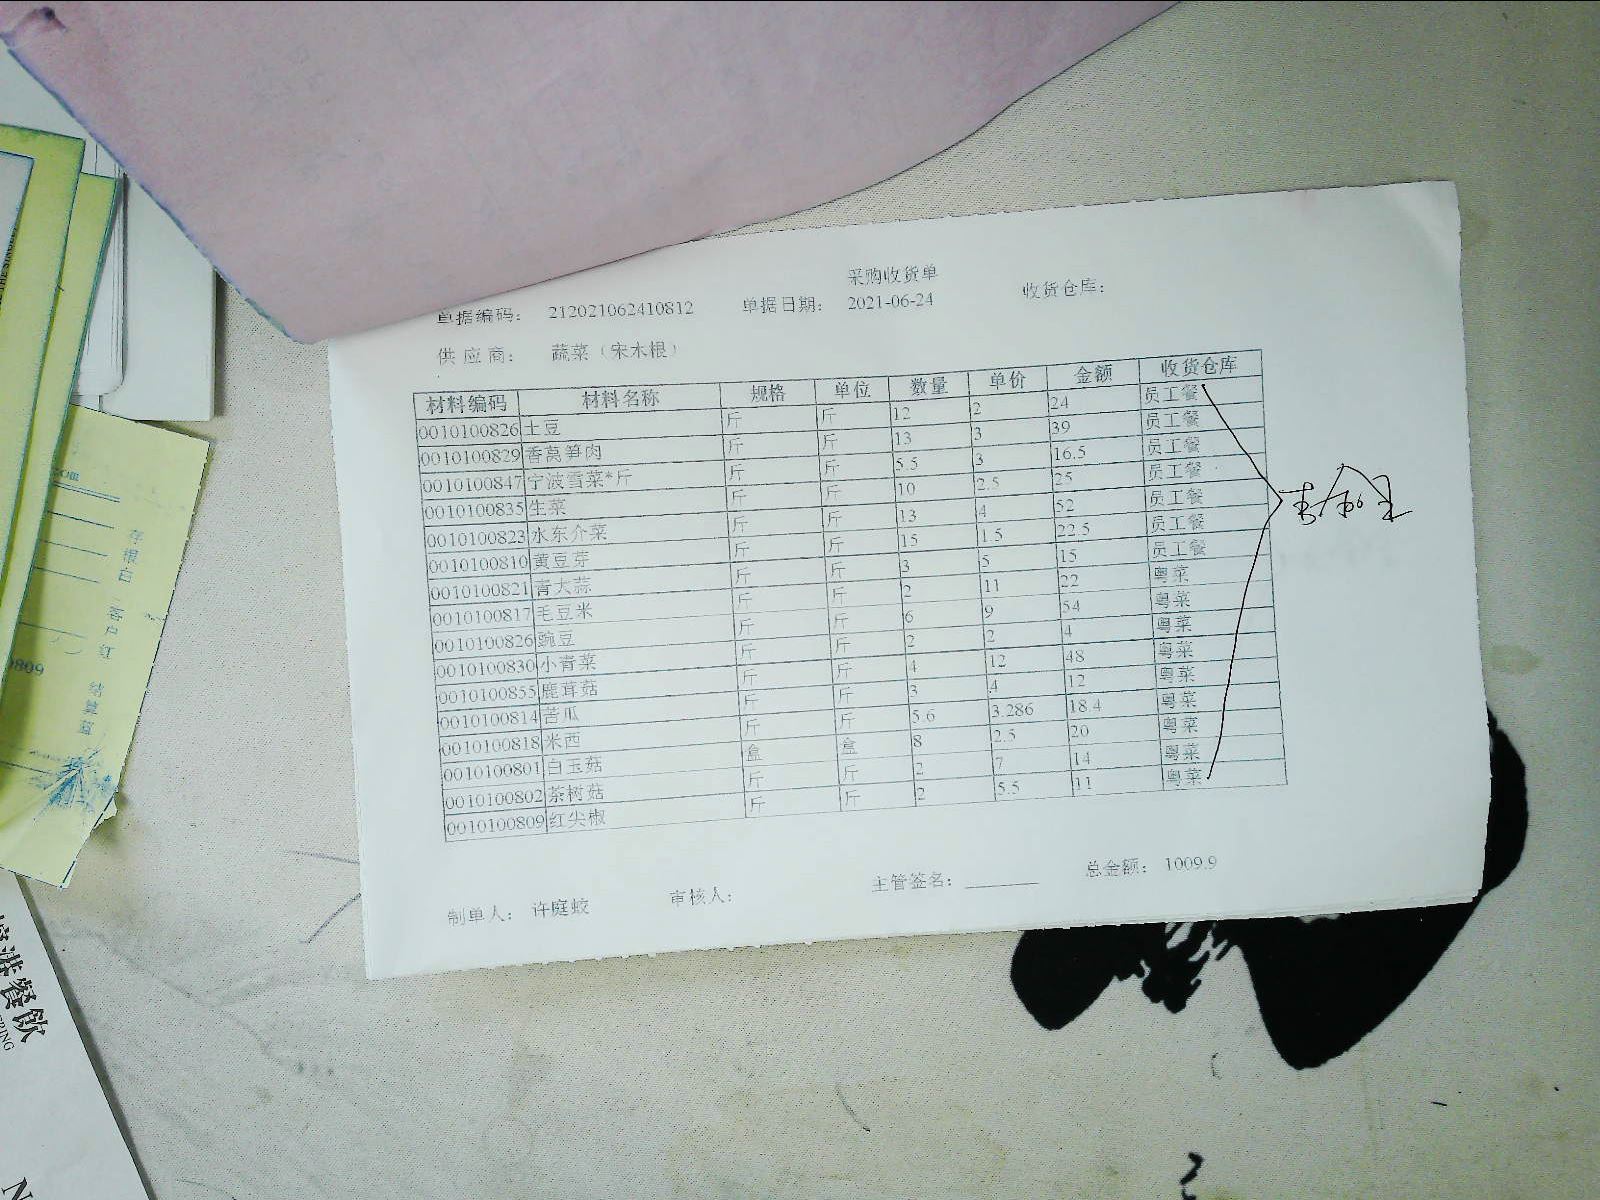 采购收货单
单据编码： 212021062410812 单据日期： 2021-06-24 收货仓库：
供应商： 蔬菜（宋木根）
材料编码 材料名称 规格 单位 数量 单价 金额 收货仓库
0010100826 土豆 斤 斤 12 2 24 员工餐
0010100829 香莴笋肉 斤 斤 13 3 39 员工餐
0010100847 宁波雪菜*斤 斤 斤 5.5 3 16.5 员工餐
0010100835 生菜 斤 斤 10 2.5 25 员工餐
0010100823 水东介菜 斤 斤 13 4 52 员工餐
0010100810 黄豆芽 斤 斤 15 1.5 22.5 员工餐
0010100821 青大蒜 斤 斤 3 5 15 员工餐
0010100817 毛豆米 斤 斤 2 11 22 粤菜
0010100826 豌豆 斤 斤 6 9 54 粤菜
0010100830 小青菜 斤 斤 2 2 4 粤菜
0010100855 鹿茸菇 斤 斤 4 12 48 粤菜
0010100814 苦瓜 斤 斤 3 4 12 粤菜
0010100818 米西 斤 斤 5.6 3.286 18.4 粤菜
0010100801 白玉菇 盒 盒 8 2.5 20 粤菜
0010100802 茶树菇 斤 斤 2 7 14 粤菜
0010100809 红尖椒 斤 斤 2 5.5 11 粤菜
制单人： 许庭蛟 审核人： 主管签名： 总金额： 1009.9
存根白 客户红 结算蓝
餐飲